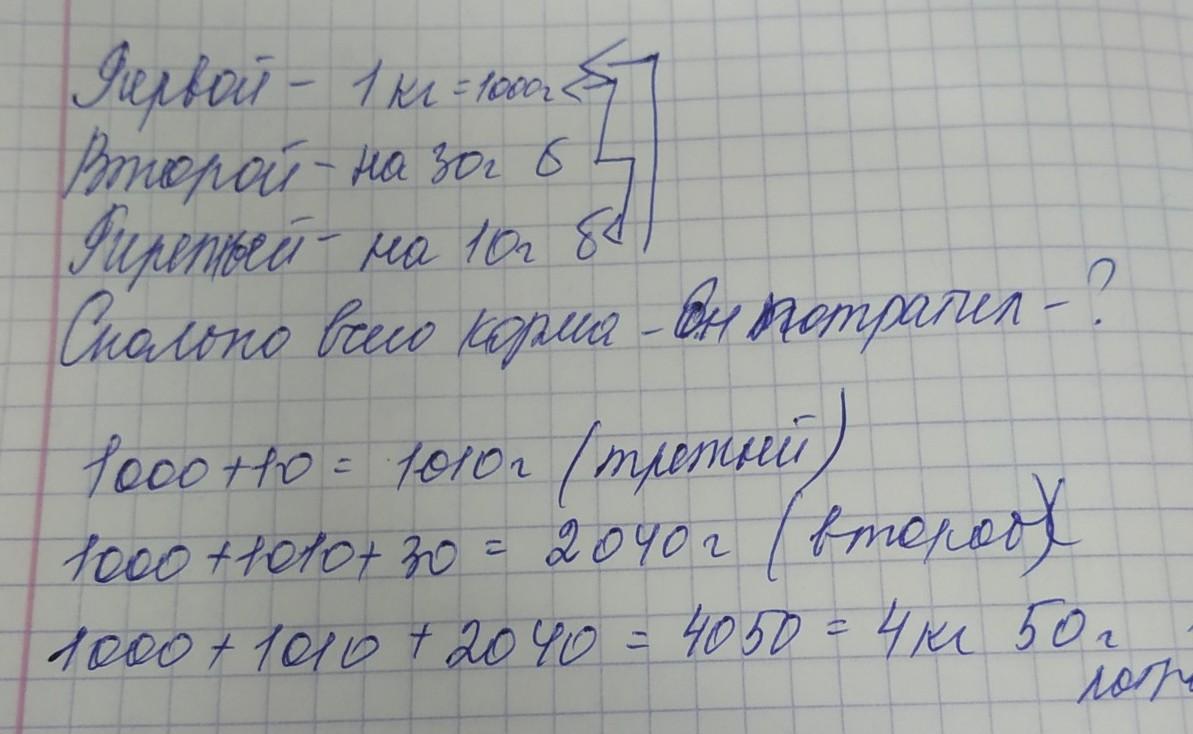 Первой - 1 кг = 1000г
Второй - на 30г б
Третьей - на 10г б
Сколько всего корма - Он потратил - ?
1000 + 10 = 1010г (третий)
1000 + 1010 + 30 = 2040г (второй)
1000 + 1010 + 2040 = 4050 = 4кг 50г
потр